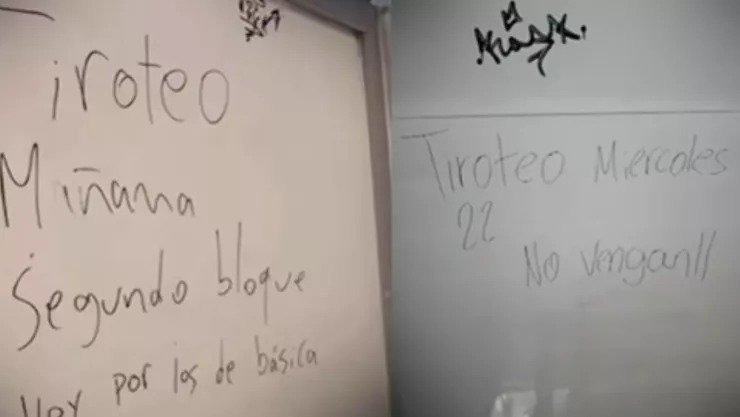 Tiroteo
Miñana
Segundo bloque
Voy por los de básica
Tiroteo Miercoles
22
No vengan!!